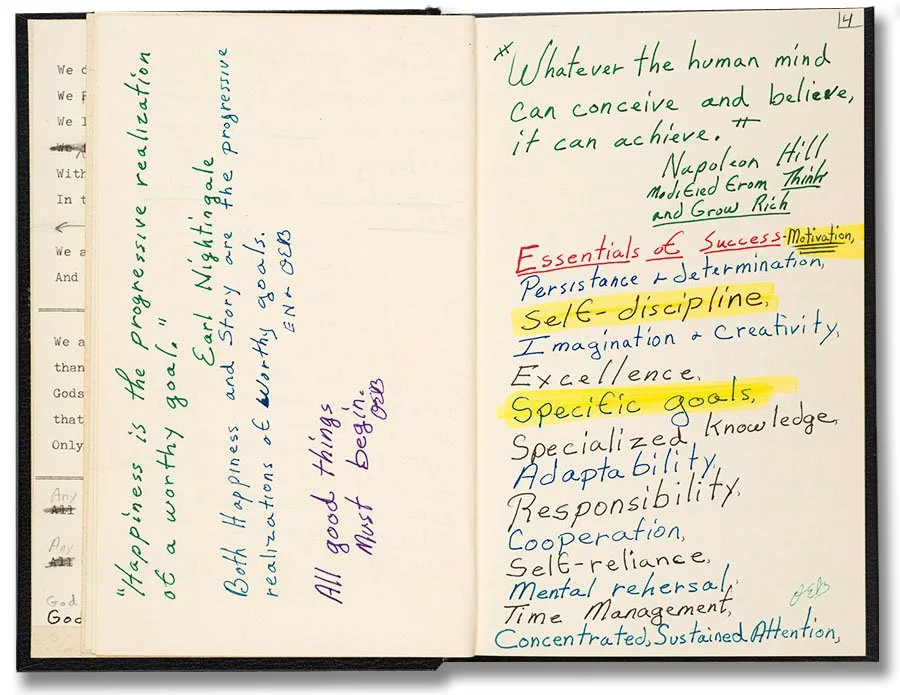 We
We
We
We
With
In t
We a
And
We a
than
Gods
that
Only
Any
All
Any
All
God
God
"Happiness is the progressive realization
of a worthy goal."
Earl Nightingale
Both Happiness and Story are the progressive
realizations of worthy goals.
EN & OEB
All good things
Must begin.
OEB
14
"Whatever the human mind
can conceive and believe,
it can achieve."
Napoleon Hill
modified from Think
and Grow Rich
Essentials of Success-Motivation,
Persistance & determination,
Self-discipline,
Imagination & Creativity,
Excellence,
Specific goals,
Specialized Knowledge,
Adaptability,
Responsibility,
Cooperation,
Self-reliance,
Mental rehersal,
OEB
Time Management,
Concentrated, Sustained Attention,